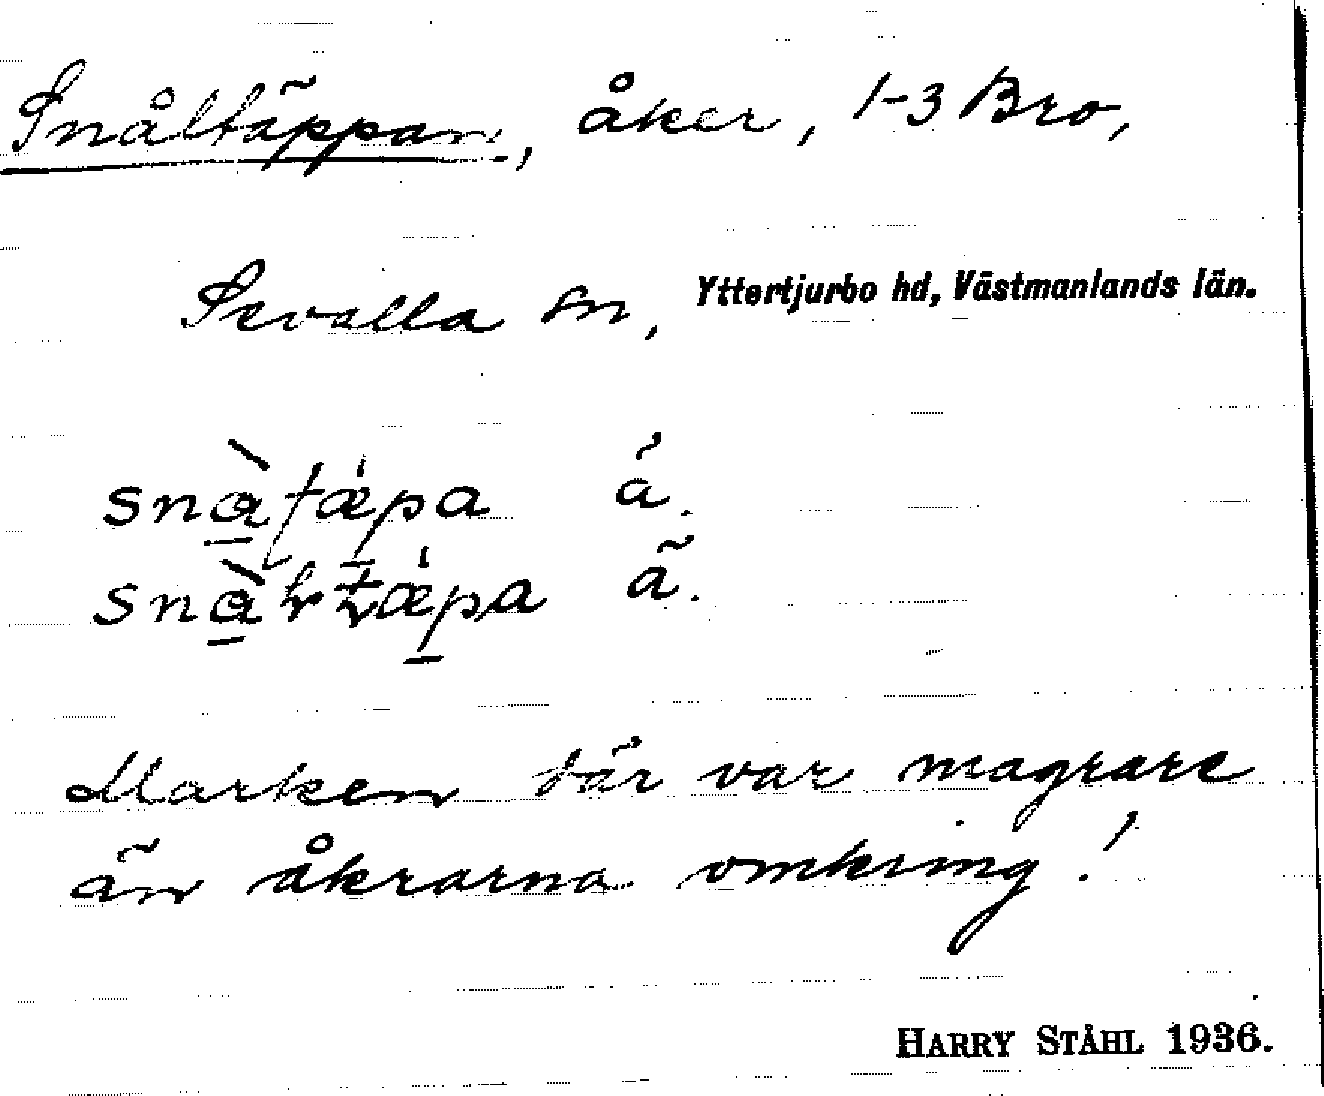 Snåltäppan, åker, 1-3 Bro,
Sevalla sn, Yttertjurbo hd, Västmanlands län.
snàʈæ̍pa ä.
snàɽʈæ̍pa ä.
Marken där var magrare
än åkrarna omkring!
HARRY STÅHL 1936.